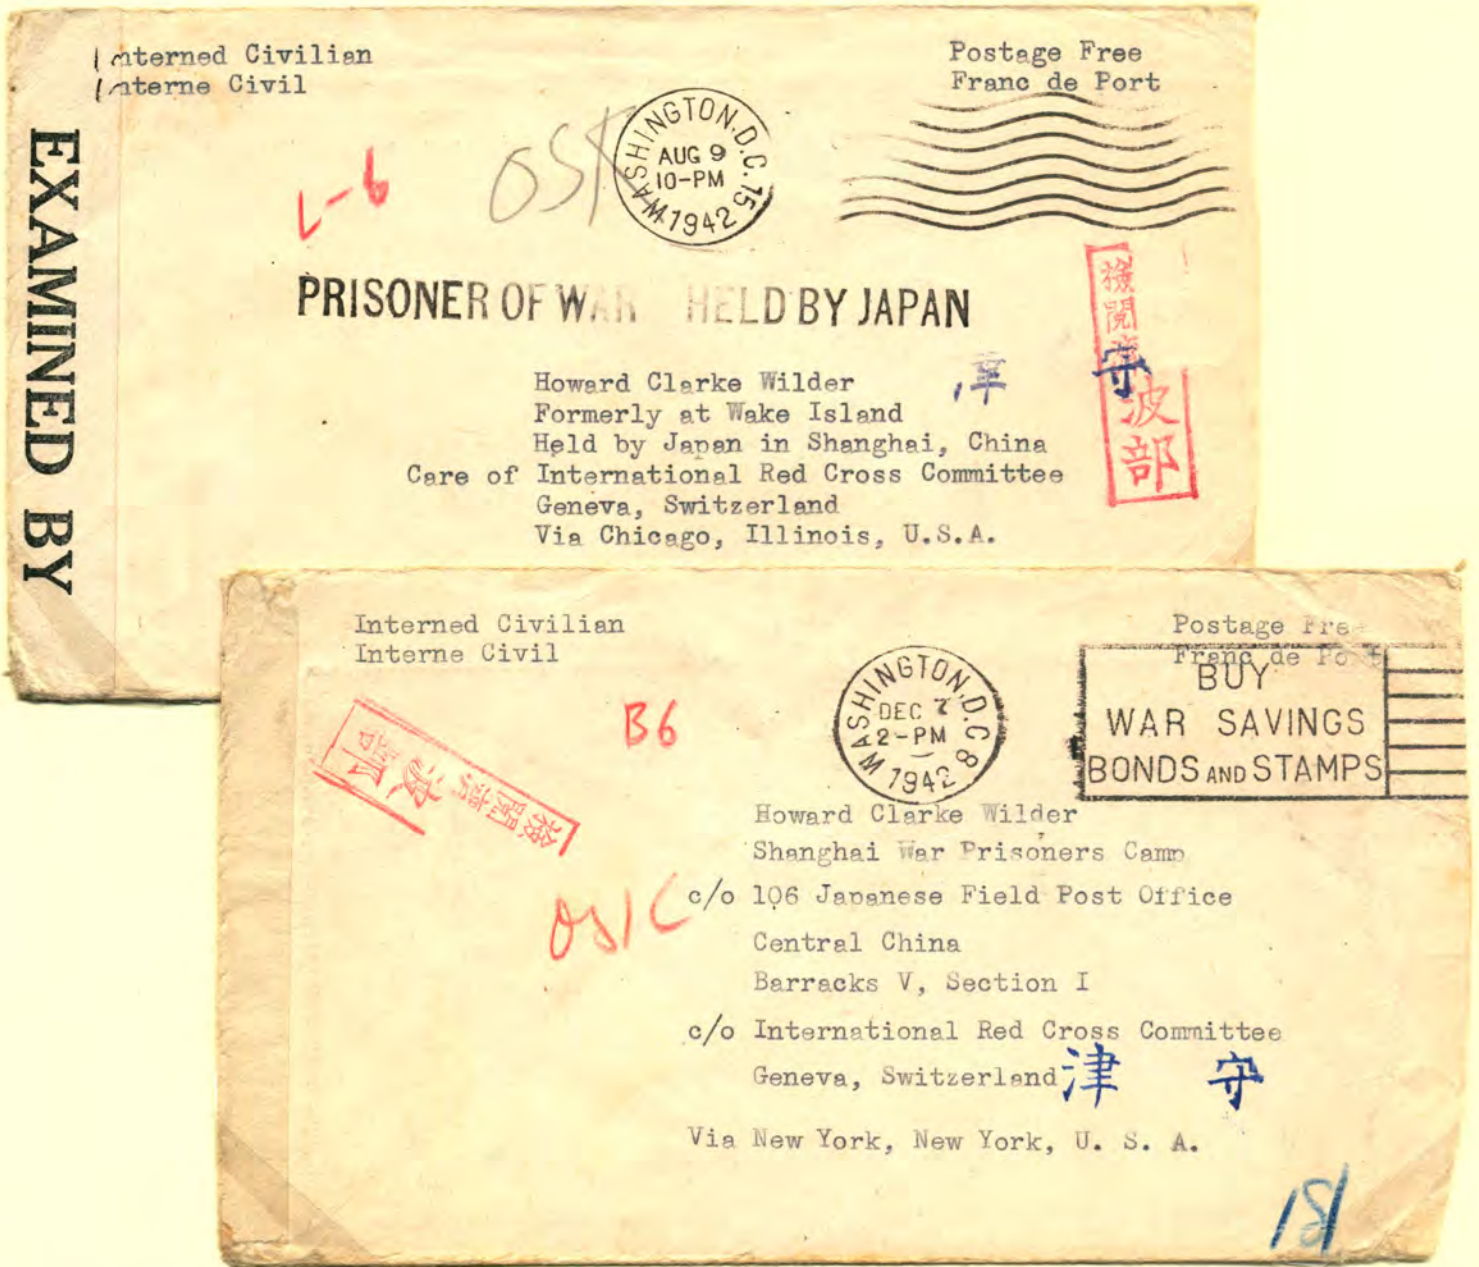 Interned Civilian
Interne Civil
Postage Free
Franc de Port
EXAMINED BY
L-6
OSK
WASHINGTON, D.C. 15
AUG 9
10-PM
1942
PRISONER OF WAR HELD BY JAPAN
檢閲濟
波部
津 守
Howard Clarke Wilder
Formerly at Wake Island
Held by Japan in Shanghai, China
Care of International Red Cross Committee
Geneva, Switzerland
Via Chicago, Illinois, U.S.A.
Interned Civilian
Interne Civil
Postage Free
Franc de Port
B6
WASHINGTON, D.C. 8
DEC 7
2-PM
1942
BUY
WAR SAVINGS
BONDS AND STAMPS
檢閲濟
波部
Howard Clarke Wilder
Shanghai War Prisoners Camp
c/o 106 Japanese Field Post Office
Central China
Barracks V, Section I
c/o International Red Cross Committee
Geneva, Switzerland
津 守
Via New York, New York, U. S. A.